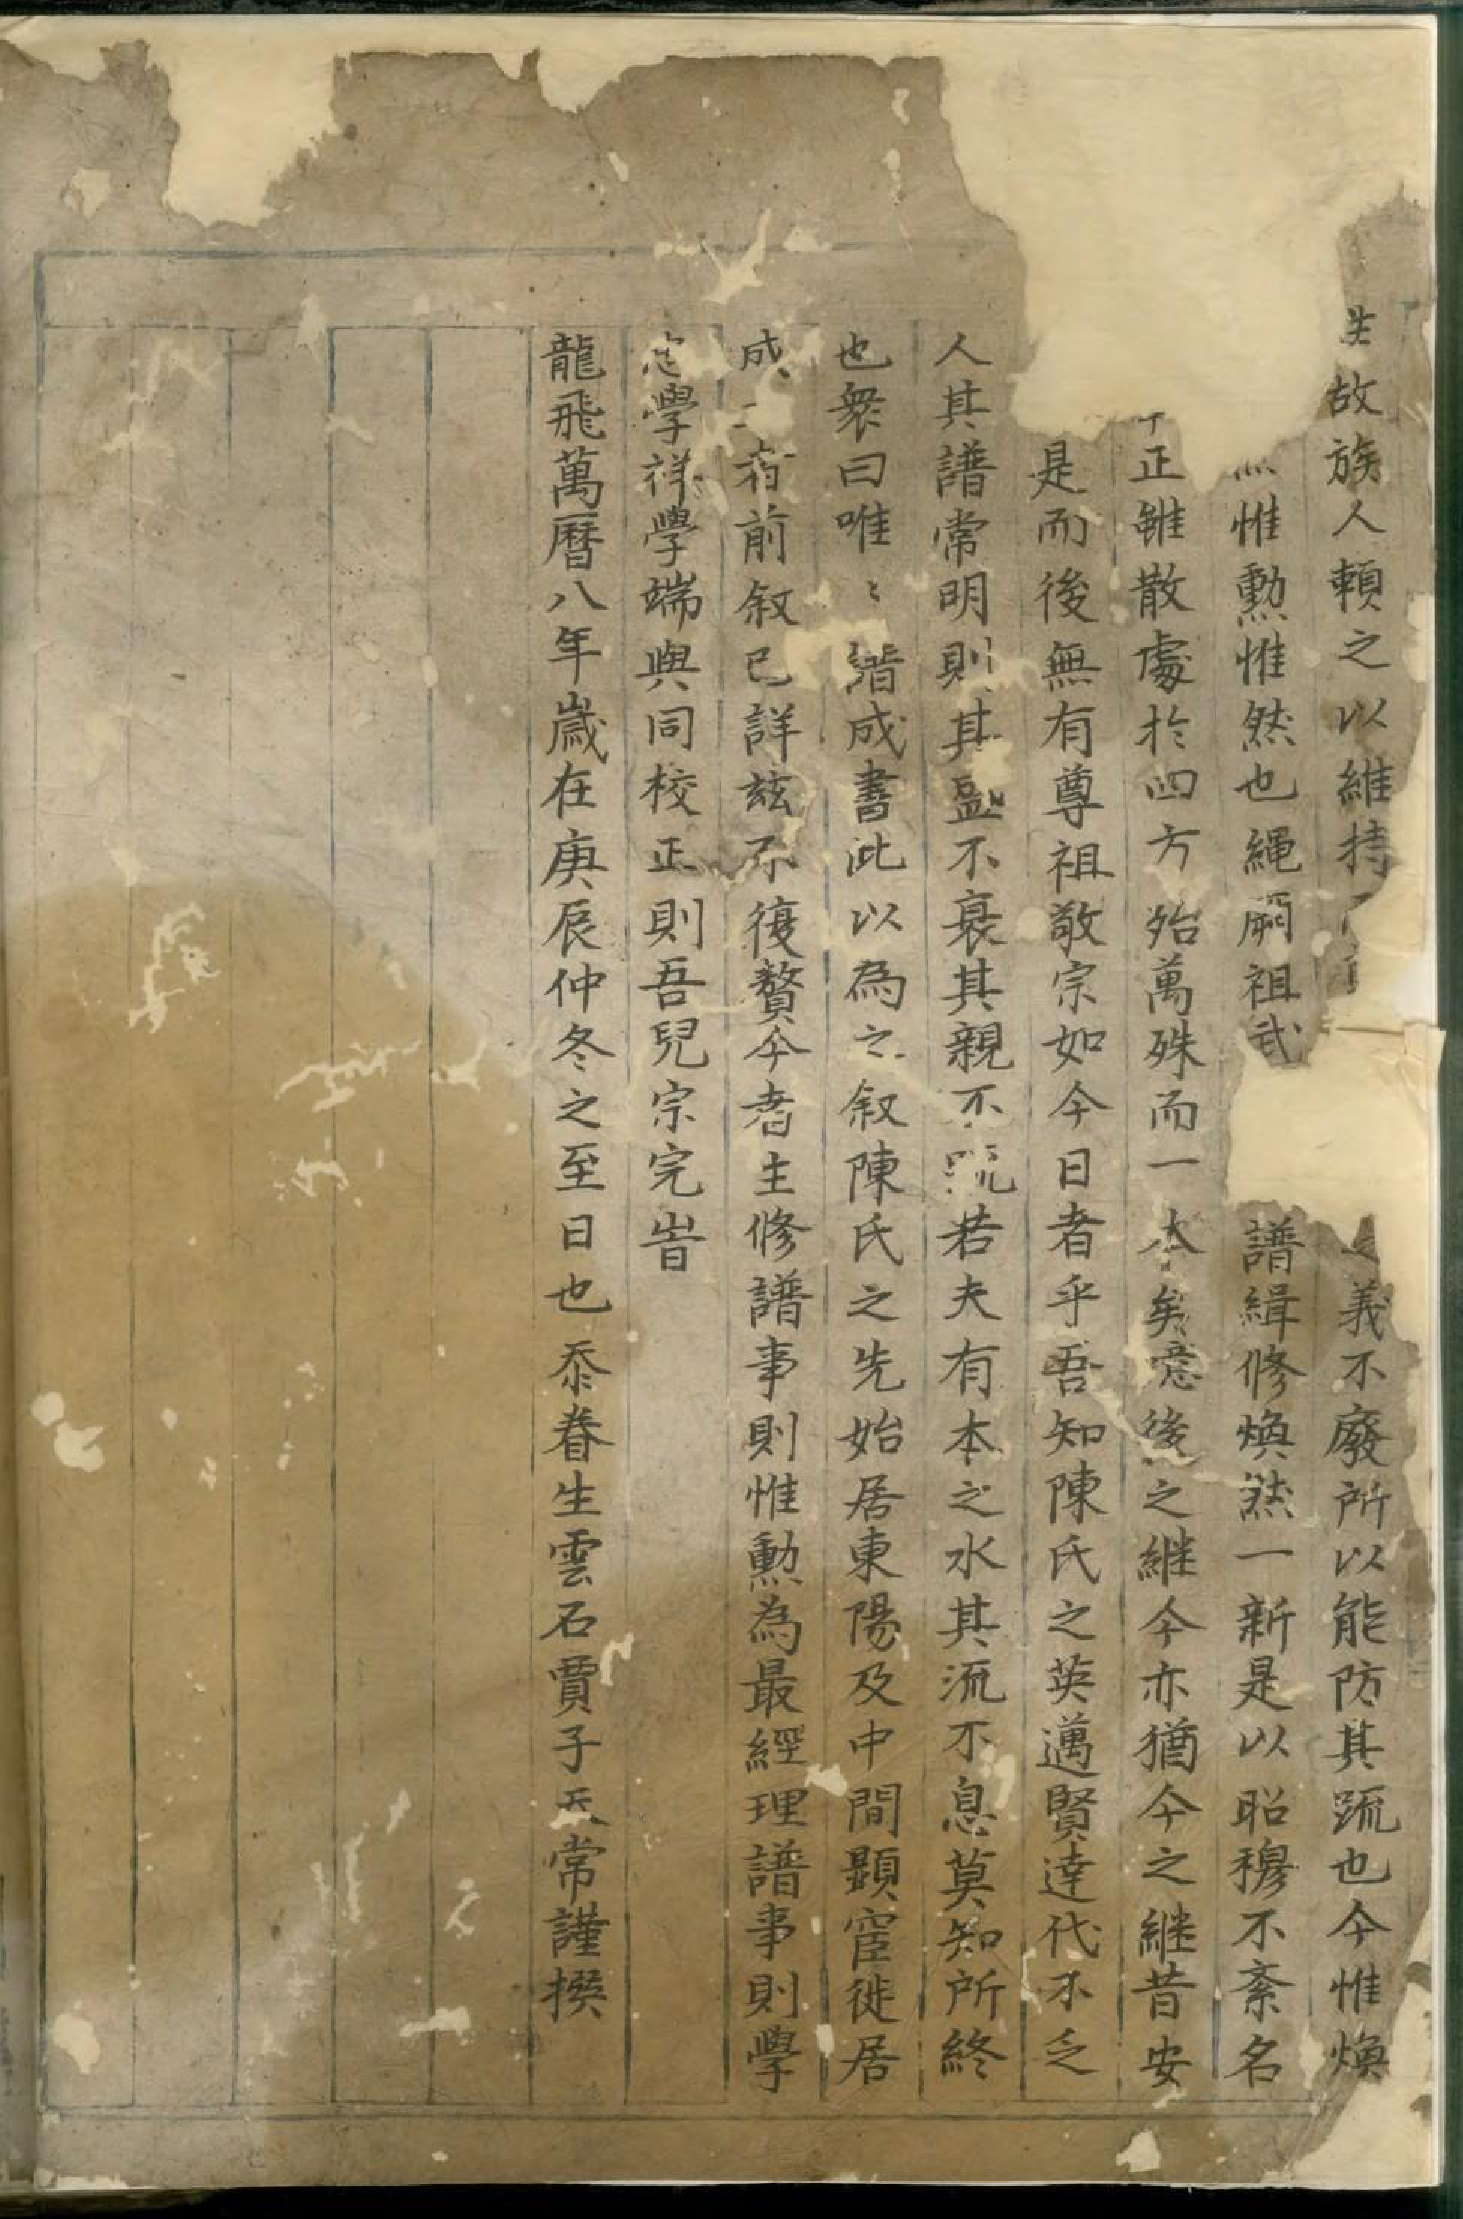 故族人賴之以維持義不廢所以能防其䟽也今惟煥
惟勲惟然也繩嗣祖武譜緝修煥然一新是以昭穆不紊名
正雖散處扵四方殆萬殊而一本矣意後之継今亦猶今之継昔安
是而後無有尊祖敬宗如今日者乎吾知陳氏之英邁賢達代不乏
人其譜常明則其盛不衰其親不䟽若夫有本之水其流不息莫知所終
也衆曰唯〻譜成書此以為之叙陳氏之先始居東陽及中間顕宦徙居
成有前叙已詳兹不復贅今者主修譜事則惟勲為最經理譜事則學
學祥學端與同校正則吾兒宗完㫖
龍飛萬曆八年歲在庚辰仲冬之至日也忝眷生雲石賈子天常謹撰